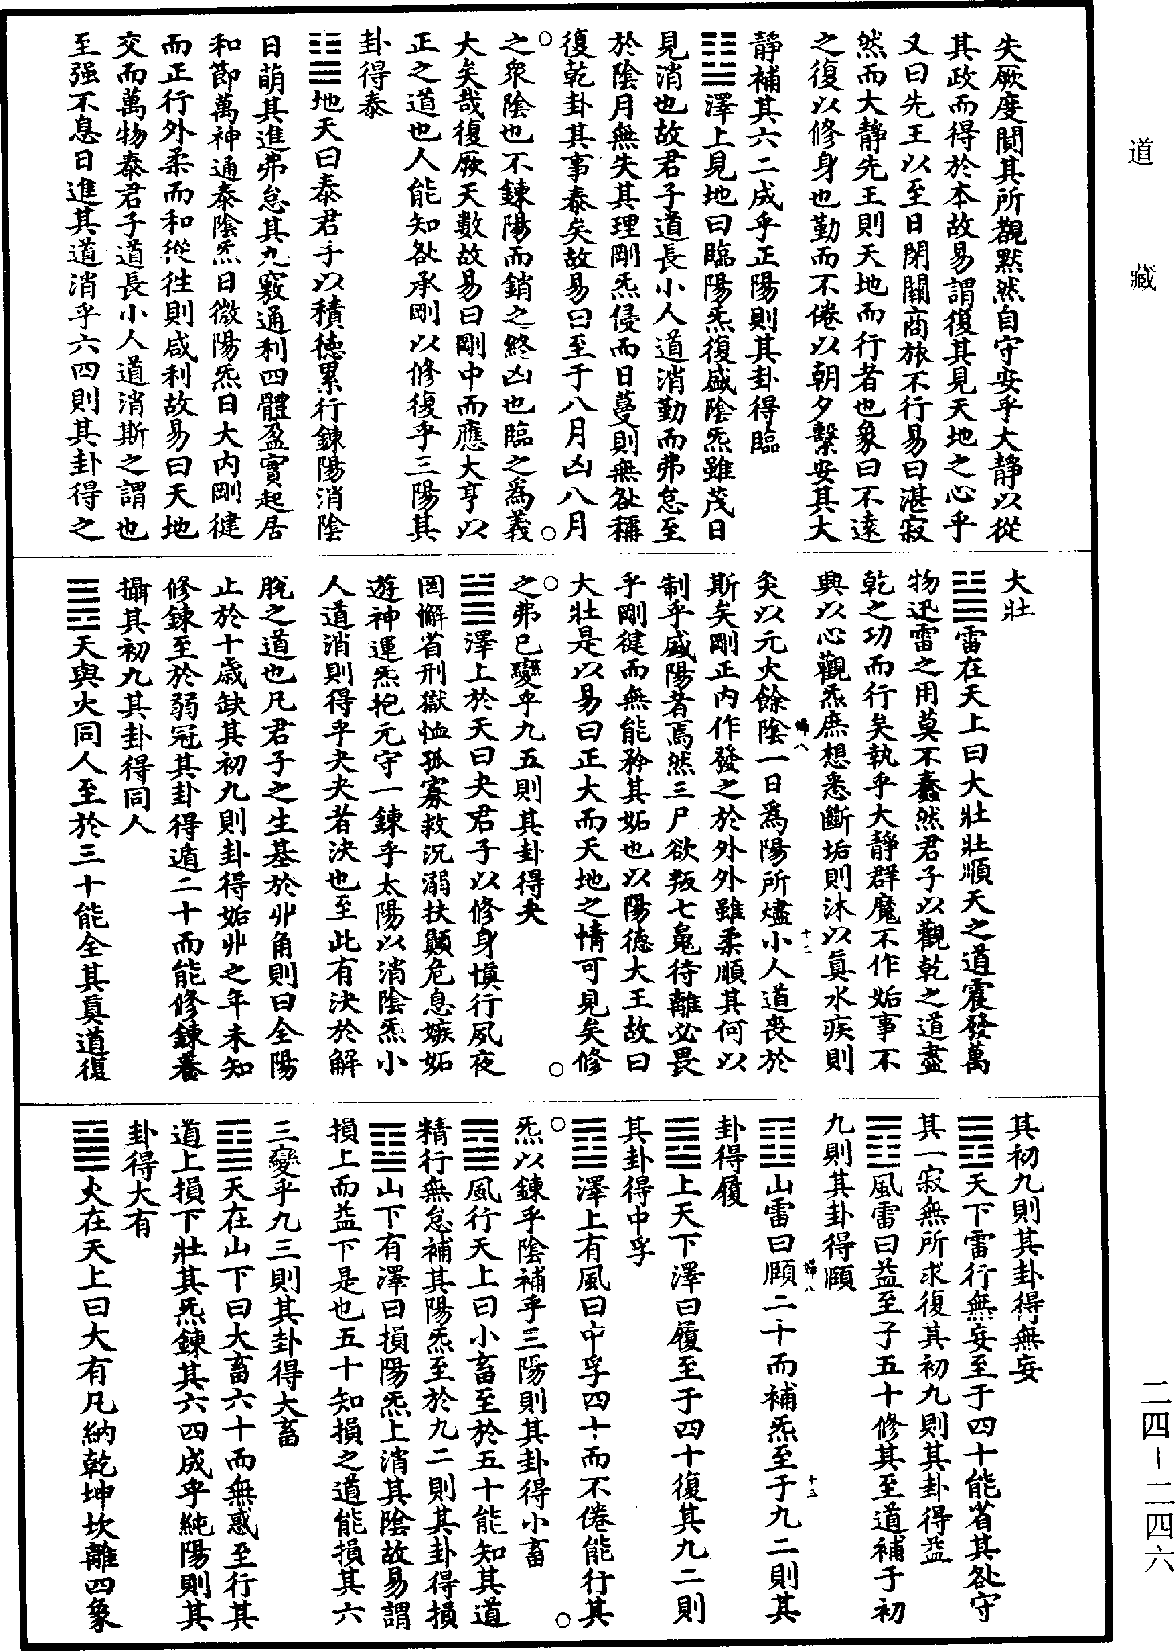 道藏
失厥度闃其所觀默然自守安乎大静以從
其政而得於本故易謂復其見天地之心乎
又曰先王以至日閉關商旅不行易曰湛寂
然而大静先王則天地而行者也象曰不遠
之復以修身也勤而不倦以朝夕繫安其大
静補其六二成乎正陽則其卦得臨
䷒澤上見地曰臨陽炁復盛陰炁雖茂日
見消也故君子道長小人道消勤而弗怠至
於陰月無失其理剛炁侵而日蔓則無咎稱
復乾卦其事泰矣故易曰至于八月凶八月
之衆陰也不鍊陽而銷之終凶也臨之爲義
大矣哉復厥天數故易曰剛中而應大亨以
正之道也人能知咎承剛以修復乎三陽其
卦得泰
䷊地天曰泰君子以積德累行鍊陽消陰
日萌其進弗怠其九竅通利四體盈實起居
和節萬神通泰陰炁日微陽炁日大内剛健
而正行外柔而和從往則咸利故易曰天地
交而萬物泰君子道長小人道消斯之謂也
至强不息日進其道消乎六四則其卦得之
大壯
䷡雷在天上曰大壯壯順天之道震發萬
物迅雷之用莫不蠢然君子以觀乾之道盡
乾之功而行矣執乎大静群魔不作姤事不
興以心觀炁庶想悉斷垢則沐以真水疾則
灸以元火餘陰一日爲陽所燼小人道喪於
斯矣剛正内作發之於外外雖柔順其何以
制乎盛陽者焉然三尸欲叛七䰟待離必畏
乎剛健而無能矜其妬也以陽德大王故曰
大壯是以易曰正大而天地之情可見矣修
之弗已變乎九五則其卦得夬
䷪澤上於天曰夬君子以修身慎行夙夜
罔懈省刑獄恤孤寡救沉溺扶顛危息嫉妬
遊神運炁抱元守一鍊乎太陽以消陰炁小
人道消則得乎夬夬者決也至此有決於解
脱之道也凡君子之生基於丱角則曰全陽
止於十歲缺其初九則卦得姤丱之年未知
修鍊至於弱冠其卦得遁二十而能修鍊養
攝其初九其卦得同人
䷌天與火同人至於三十能全其真道復
其初九則其卦得無妄
䷘天下雷行無妄至于四十能省其咎守
其一寂無所求復其初九則其卦得益
䷩風雷曰益至于五十修其至道補于初
九則其卦得頤
䷚山雷曰頤二十而補炁至于九二則其
卦得履
䷉上天下澤曰履至于四十復其九二則
其卦得中孚
䷼澤上有風曰中孚四十而不倦能行其
炁以鍊乎陰補乎三陽則其卦得小畜
䷈風行天上曰小畜至於五十能知其道
精行無怠補其陽炁至於九二則其卦得損
䷨山下有澤曰損陽炁上消其陰故易謂
損上而益下是也五十知損之道能損其六
三變乎九三則其卦得大畜
䷙天在山下曰大畜六十而無惑至行其
道上損下壯其炁鍊其六四成乎純陽則其
卦得大有
䷍火在天上曰大有凡納乾坤坎離四象
二四－二四六